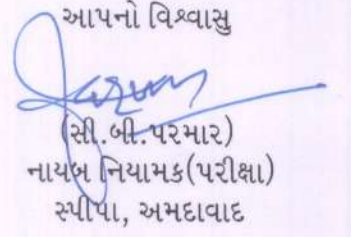 આપનો વિશ્વાસુ
(સી.બી.પરમાર)
નાયબ નિયામક(પરીક્ષા)
સ્પીપા, અમદાવાદ